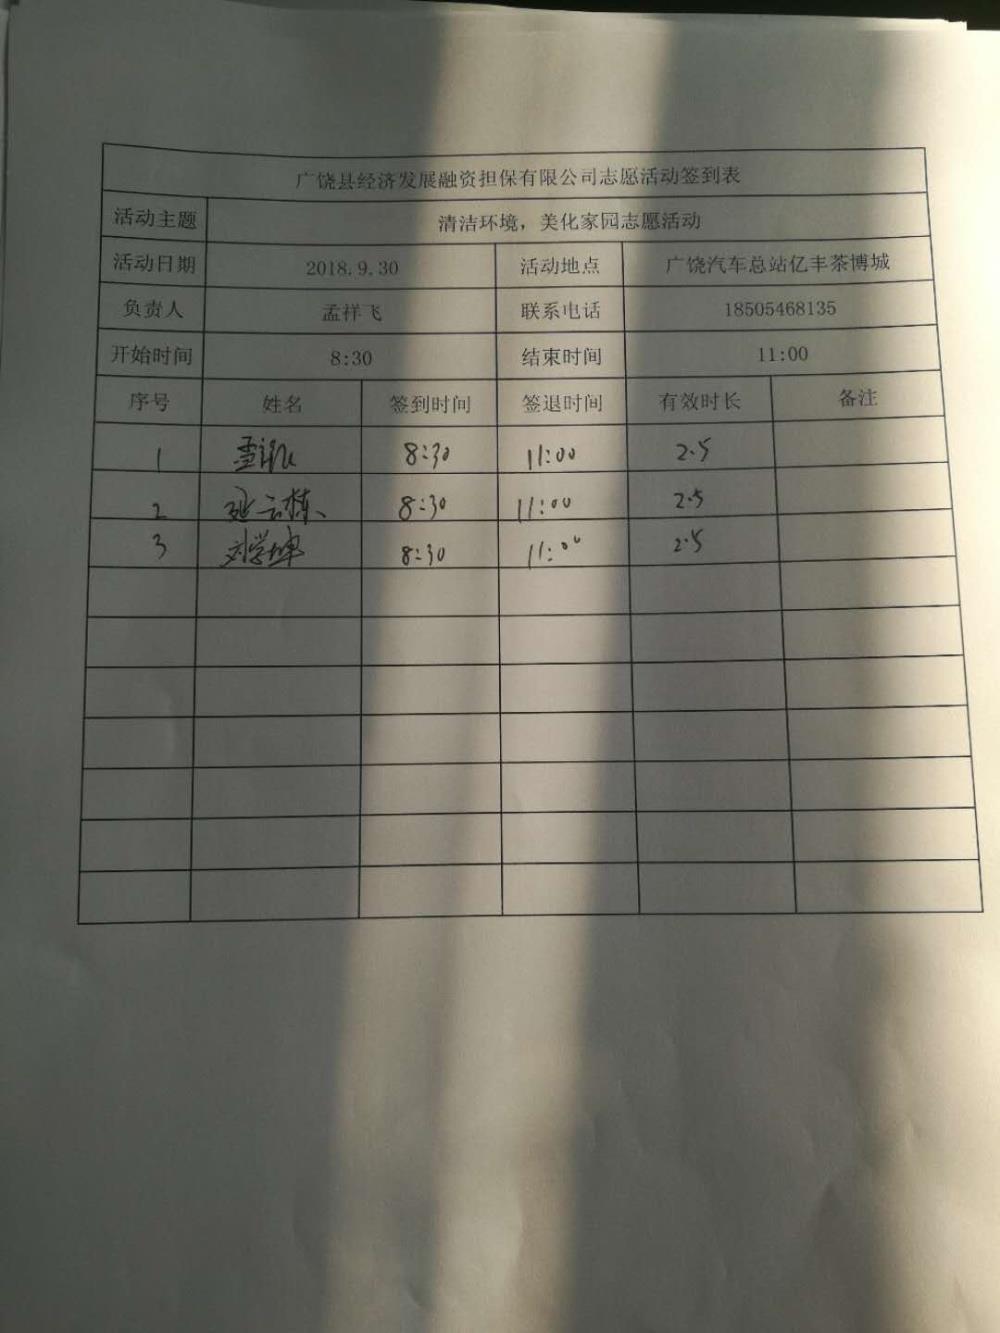 广饶县经济发展融资担保有限公司志愿活动签到表
活动主题 清洁环境，美化家园志愿活动
活动日期 2018.9.30 活动地点 广饶汽车总站亿丰茶博城
负责人 孟祥飞 联系电话 18505468135
开始时间 8:30 结束时间 11:00
序号 姓名 签到时间 签退时间 有效时长 备注
1 孟祥飞 8:30 11:00 2.5
2 延云栋 8:30 11:00 2.5
3 刘学坤 8:30 11:00 2.5